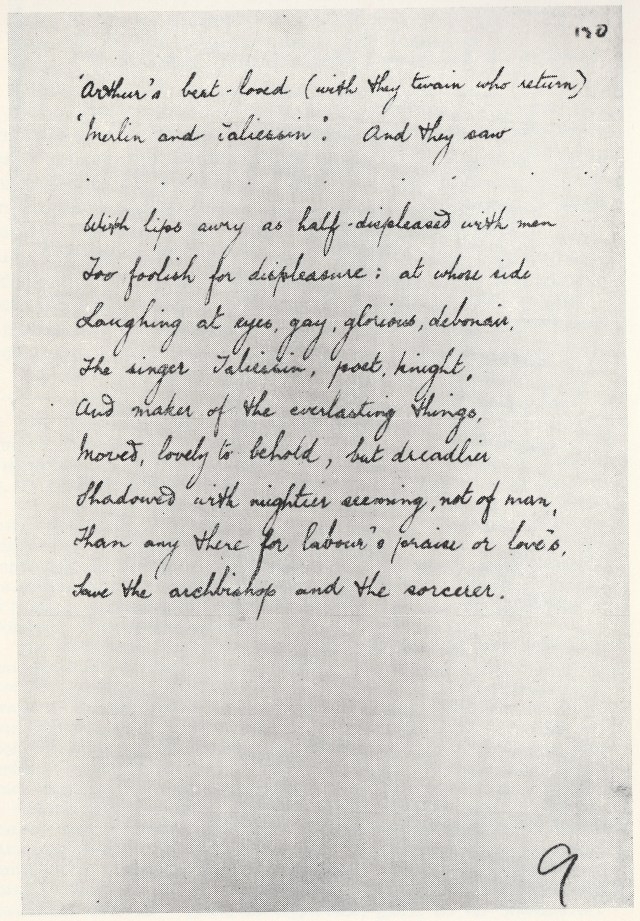 130
'Arthur's best-loved (with they twain who return)
'Merlin and Taliessin'. And they saw
. . . . . . . .
With lips awry as half-displeased with men
Too foolish for displeasure: at whose side
Laughing at eyes, gay, glorious, debonair,
The singer Taliessin, poet, knight,
And maker of the everlasting things,
Moved, lovely to behold, but dreadlier
Shadowed with mightier seeming, not of man,
Than any there for labour's praise or love's,
Save the archbishop and the sorcerer.
9